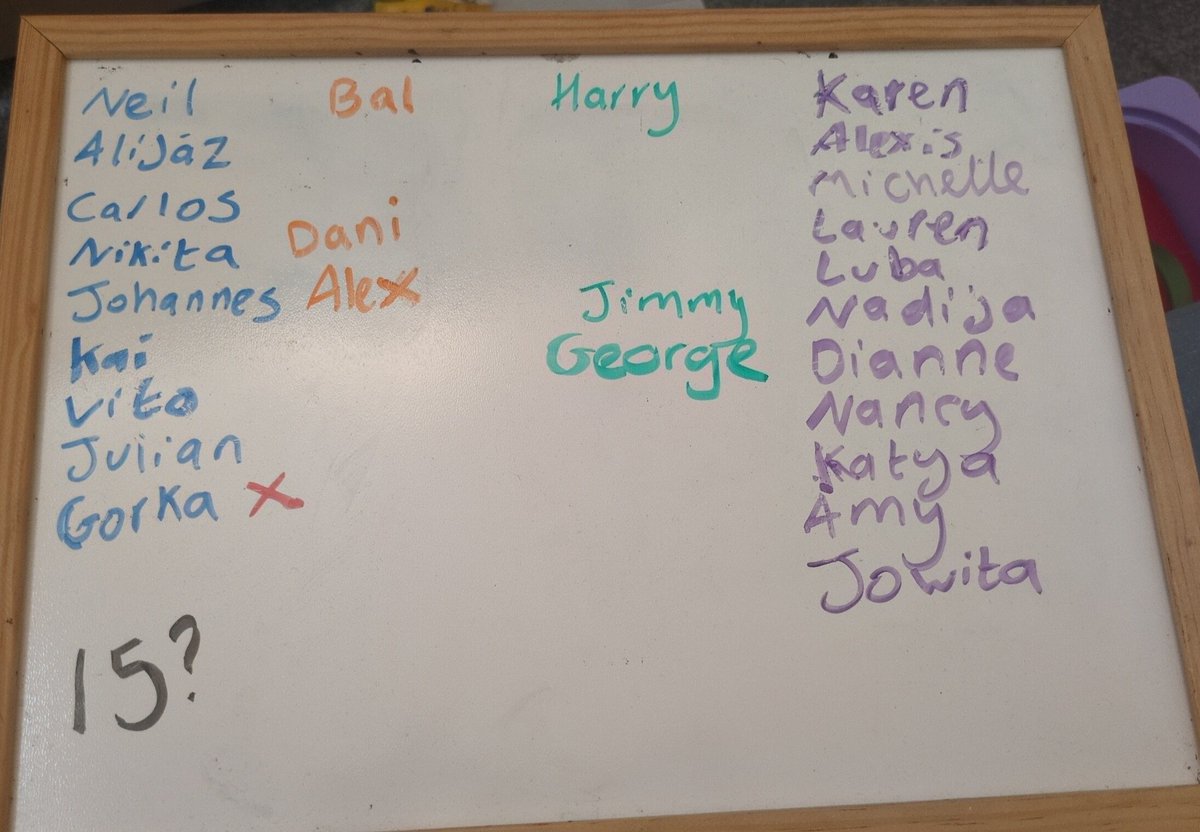 Neil Bal Harry Karen
Alijáz Alexis
Carlos Michelle
Nikita Dani Lauren
Johannes Alex Jimmy Luba
Kai George Nadija
Vito Dianne
Julian Nancy
Gorka X Katya
Amy
Jowita
15?